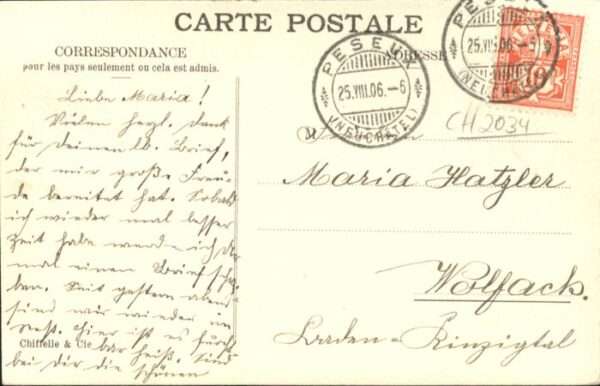 CARTE POSTALE
CORRESPONDANCE
pour les pays seulement où cela est admis.
ADRESSE
PESEUX
25.VIII.06.–6
(NEUCHATEL)
PESEUX
25.VIII.06.–6
(NEUCHATEL)
CH 2034
M
Liebe Maria!
Vielen herzl. Dank
für deinen lb. Brief,
der mir große Freu-
de bereitet hat. Sobald
ich wieder mal besser
Zeit habe werde ich dir
mal einen Brief schrei-
ben. Seit gestern abend
sind wir wieder im
Hier ist es furcht-
bar heiß. Sind
bei dir die schönen
Chiffelle & Cie
Maria Hatzler
Wolfach.
Baden-Kinzigtal